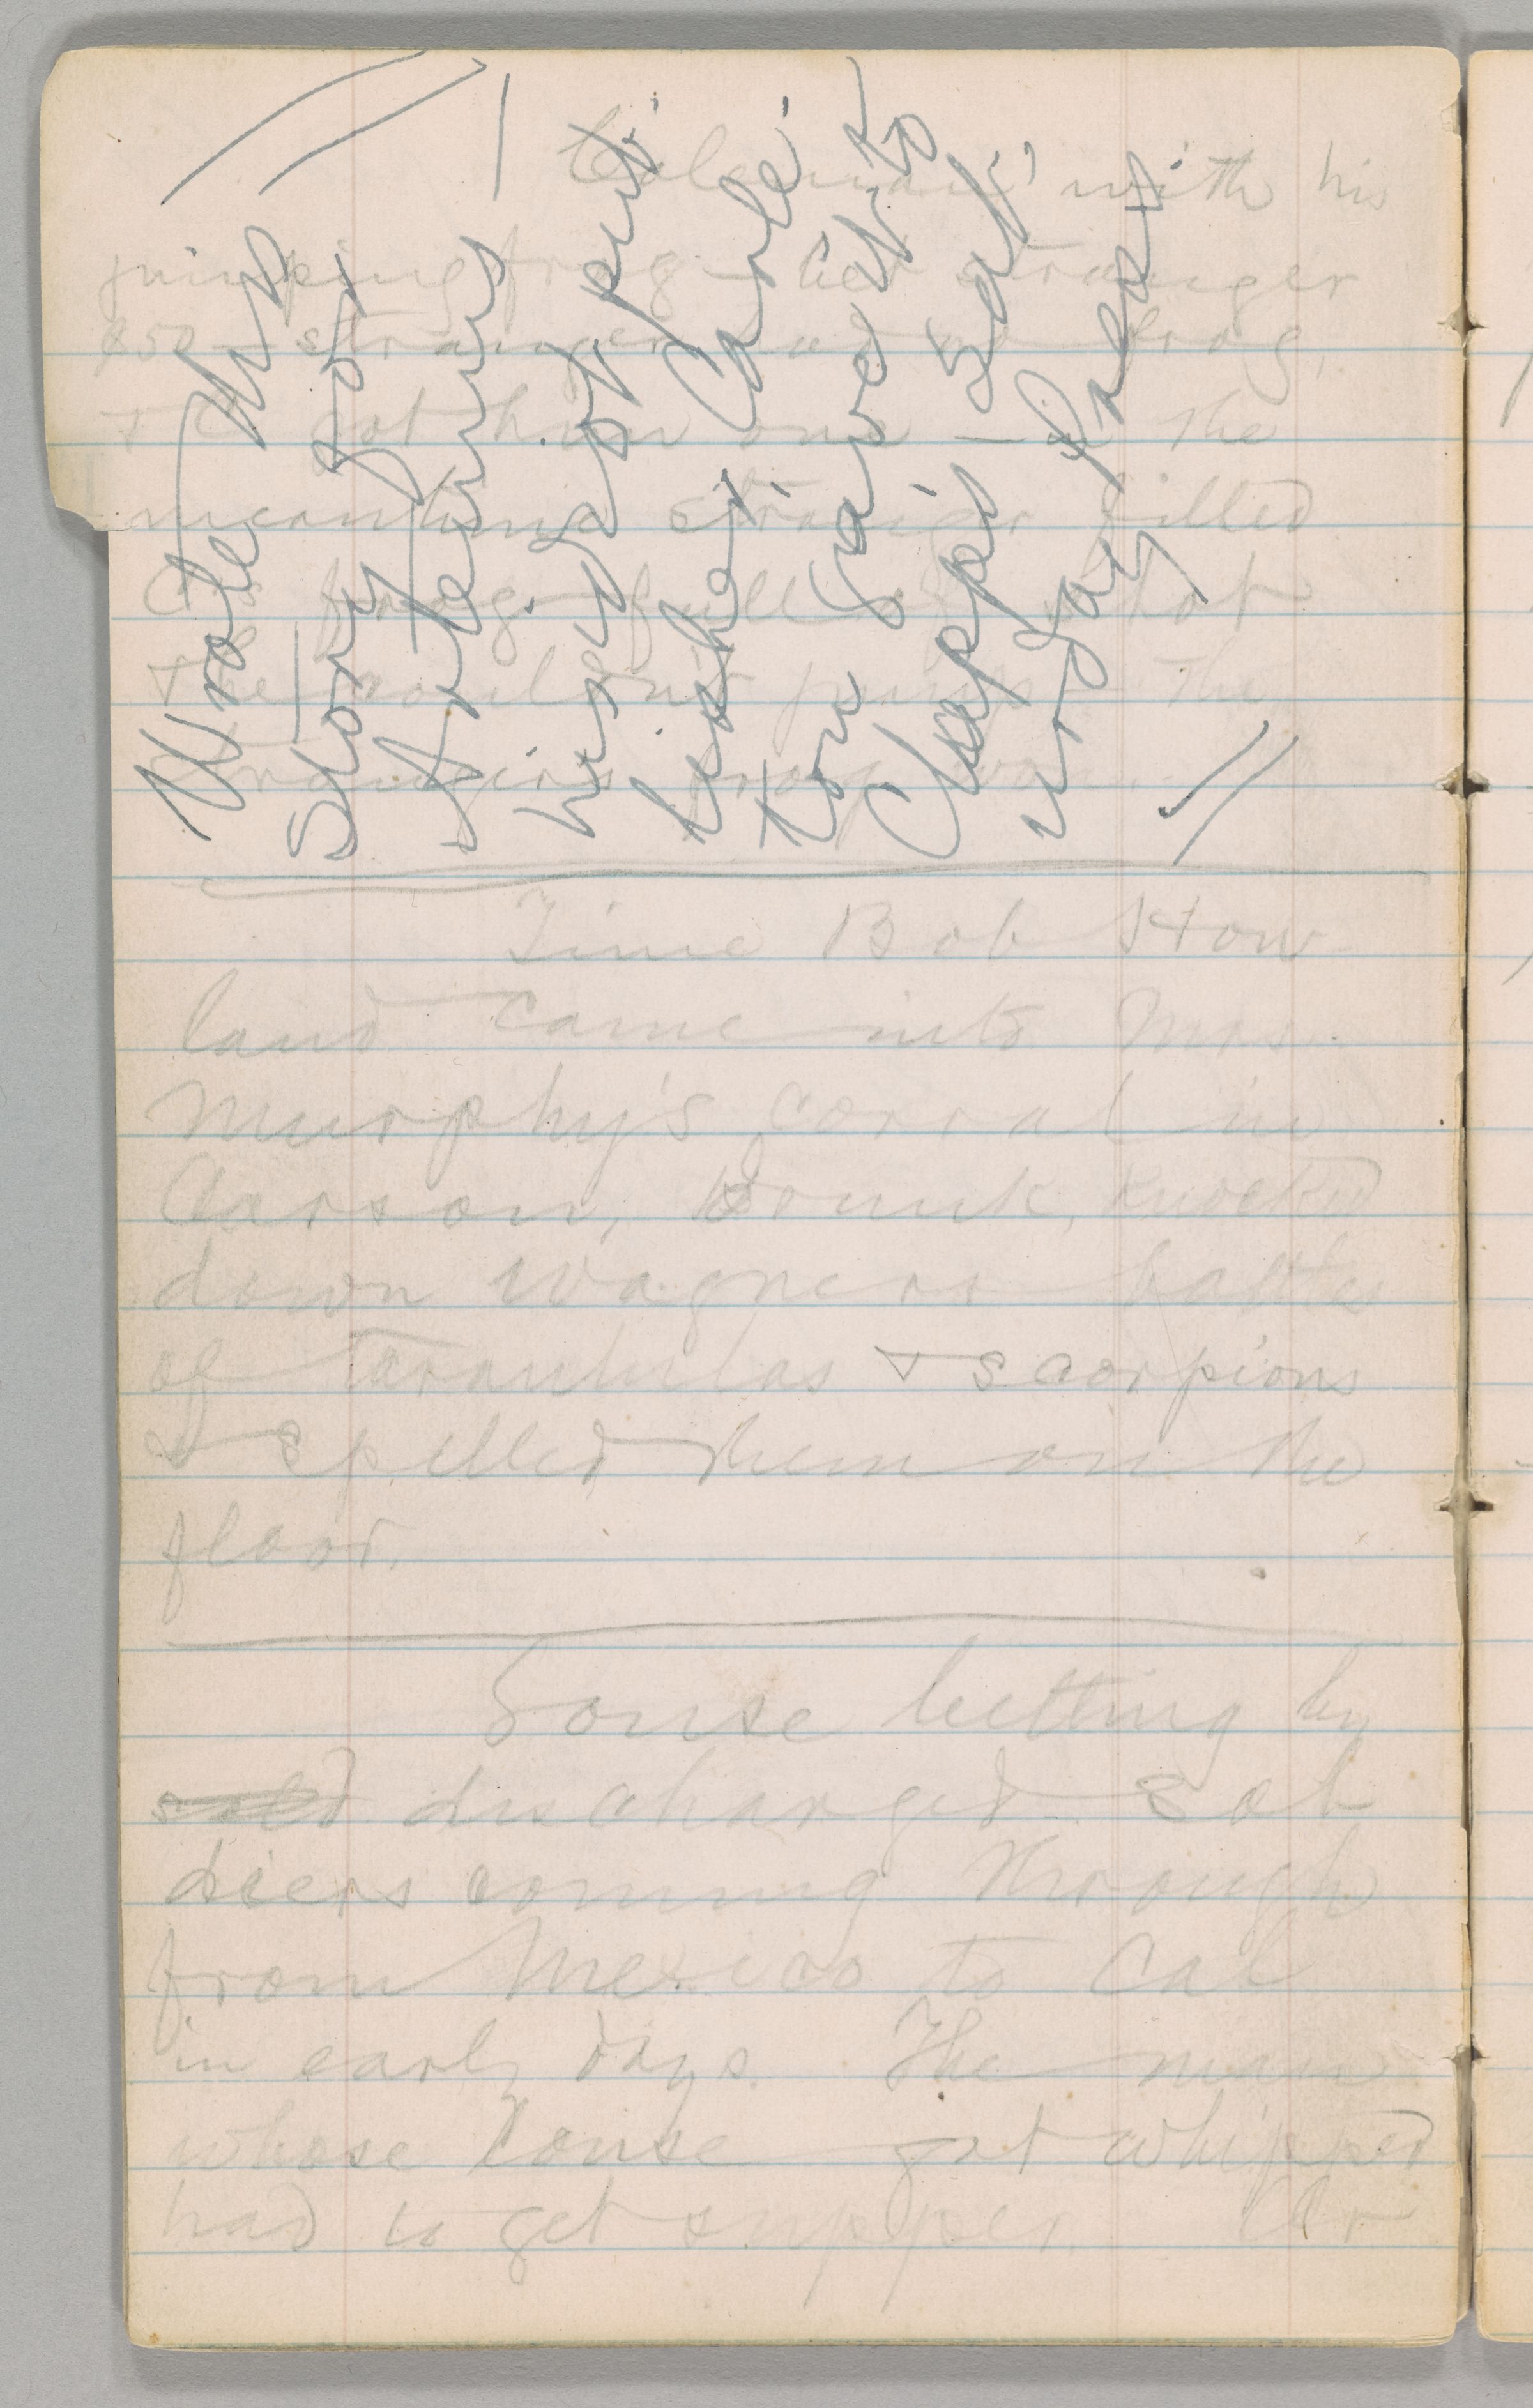 Coleman with his
jumping frog — bet stranger
$50 — stranger had no frog,
& C got him one — in the
meantime stranger filled
C's frog full of shot
& he couldn't jump — the
stranger's frog won.
Wrote this
story for
Artemus —
his idiot pub-
lisher, Carle-
ton gave it to
Clapp's Sat.
Press
Time Bob How-
land came into Mrs.
Murphy's corral in
Carson, drunk, knocked
down Wagner's bottles
of tarantulas & scorpions
& spilled them on the
floor.
Louse betting by
sold discharged sol
diers coming through
from Mexico to Cal
in early days. The man
whose louse got whipped
had to get supper. Or